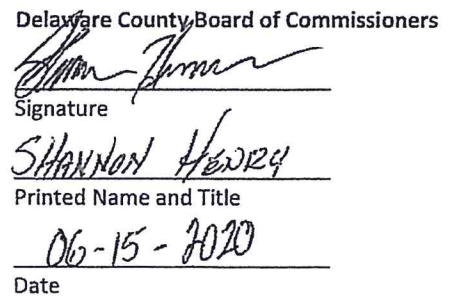 Delaware County Board of Commissioners
Signature
SHANNON HENRY
Printed Name and Title
06-15-2020
Date